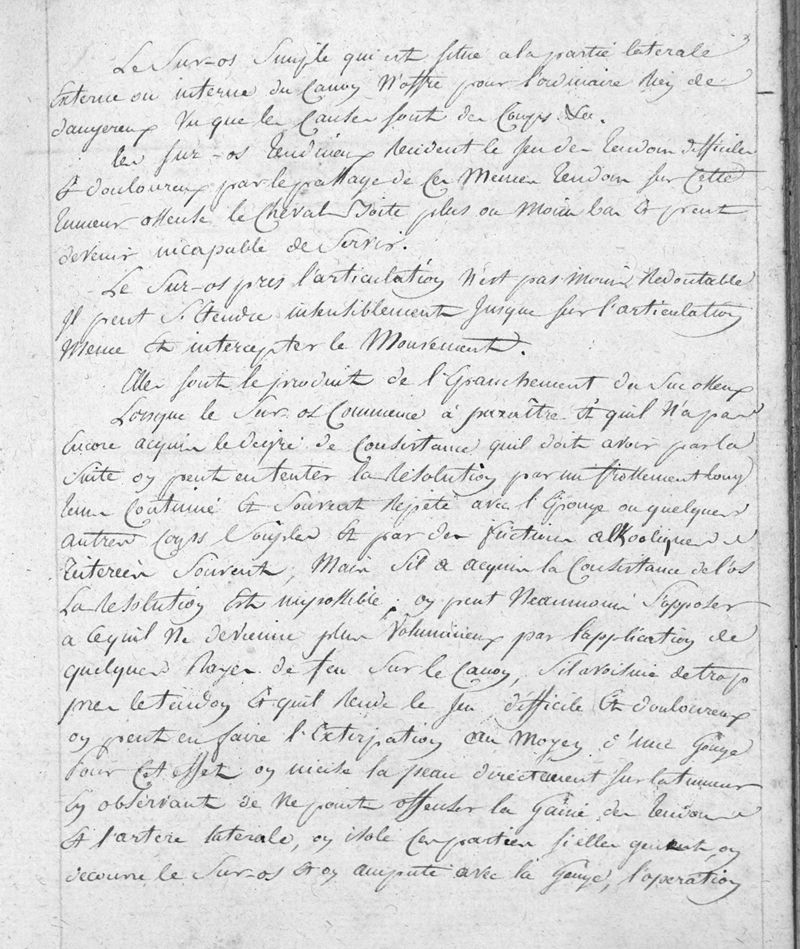 3
Le Sur-os Simple qui est situé a la partie laterale
Externe ou interne du Canon N'offre pour l'ordinaire Rien de
dangereux Vu que les Causes sont des Coups &c.
les Sur-os tendineux Rendent le Jeu des tendons difficiles
Et douloureux par le passage de Ces Mêmes tendons sur Cette
tumeur osseuse le Cheval Boite plus ou Moins bas Et peut
devenir incapable de Servir.
Le Sur-os pres l'articulation N'est pas Moins Redoutable
Il peut S'Etendre insensiblement Jusque sur l'articulation
Même Et intercepter le Mouvement.
Elles sont le produit de l'Epanchement du Suc osseux
Lorsque le Sur-os Commence à paraître Et quil N'a pas
Encore acquis le degré de Consistance quil doit avoir par la
Suite on peut en tenter la Résolution par un frottement long
tems Continué Et Souvent Repeté avec l'Eponge ou quelques
autres Corps Souples Et par des frictions alkooliques
Réitérées Souvent, Mais Sil a acquis la Consistance de l'os
La Resolution Est impossible, on peut Neanmoins S'opposer
a Cequil Ne devienne plus Volumineux par l'application de
quelques Rayes de feu Sur le Canon, Sil avoisine de trop
pres le tendon Et quil Rende le Jeu difficile Et douloureux
on peut en faire l'Extirpation au Moyen d'une Gouge
Pour Cet effet on incise la peau directement sur la tumeur
En observant de Ne point offenser la Gaine des tendons
Et l'artère laterale, on isole Ces parties si elles genent, on
decouvre le Sur-os Et on ampute avec la Gouge, l'operation